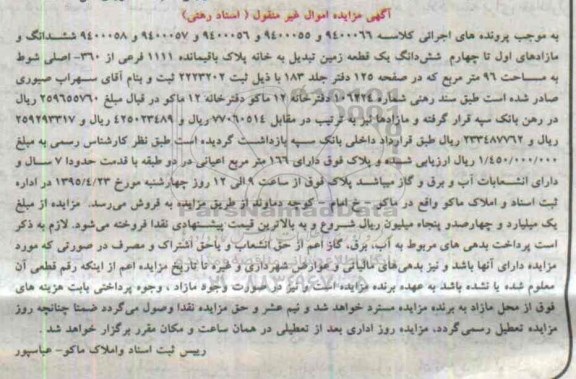 آگهی مزایده اموال غیر منقول ( اسناد رهنی)
به موجب پرونده های اجرائی کلاسه ۹۴۰۰۰۶۶ و ۹۴۰۰۰۵۵ و ۹۴۰۰۰۵۶ و ۹۴۰۰۰۵۷ و ۹۴۰۰۰۵۸ ششدانگ و
مازادهای اول تا چهارم ششدانگ یک قطعه زمین تبدیل به خانه پلاک باقیمانده ۱۱۱۱ فرعی از ۳۶۰- اصلی شوط
به مساحت ۹۶ متر مربع که در صفحه ۱۲۵ دفتر جلد ۱۸۳ با ذیل ثبت ۲۲۲۳۲۰۲ ثبت و بنام آقای سهراب صبوری
صادر شده است طبق سند رهنی شماره دفترخانه ۱۲ ماکو دفترخانه ۱۲ ماکو در قبال مبلغ ۲۵۹۶۵۵۷۶۰ ریال
در رهن بانک سپه قرار گرفته و مازادها نیز به ترتیب در مقابل ۷۷۰۶۰۵۱۴ ریال و ۴۲۵۰۲۳۴۸۹ ریال و ۲۵۹۲۹۳۳۱۷
ریال و ۲۳۳۴۸۷۷۶۲ ریال طبق قرارداد داخلی بانک سپه بازداشت گردیده است طبق نظر کارشناس رسمی به مبلغ
۱/۴۵۰/۰۰۰/۰۰۰ ریال ارزیابی شده و پلاک فوق دارای ۱۶۶ متر مربع اعیانی در دو طبقه با قدمت حدودا ۷ سال و
دارای انشعابات آب و برق و گاز میباشد پلاک فوق از ساعت ۹ الی ۱۲ روز چهارشنبه مورخ ۱۳۹۵/۴/۲۳ در اداره
ثبت اسناد و املاک ماکو واقع در ماکو - خ امام - کوچه دماوند از طریق مزایده به فروش می‌رسد. مزایده از مبلغ
یک میلیارد و چهارصدو پنجاه میلیون ریال شروع و به بالاترین قیمت پیشنهادی نقدا فروخته می‌شود. لازم به ذکر
است پرداخت بدهی های مربوط به آب، برق، گاز اعم از حق انشعاب و یاحق اشتراک و مصرف در صورتی که مورد
مزایده دارای آنها باشد و نیز بدهی‌های مالیاتی و عوارض شهرداری و غیره تا تاریخ مزایده اعم از اینکه رقم قطعی آن
معلوم شده یا نشده باشد به عهده برنده مزایده است و نیز در صورت وجود مازاد ، وجوه پرداختی بابت هزینه های
فوق از محل مازاد به برنده مزایده مسترد خواهد شد و نیم عشر و حق مزایده نقدا وصول می‌گردد ضمنا چنانچه روز
مزایده تعطیل رسمی گردد، مزایده روز اداری بعد از تعطیلی در همان ساعت و مکان مقرر برگزار خواهد شد .
رییس ثبت اسناد واملاک ماکو- عباسپور